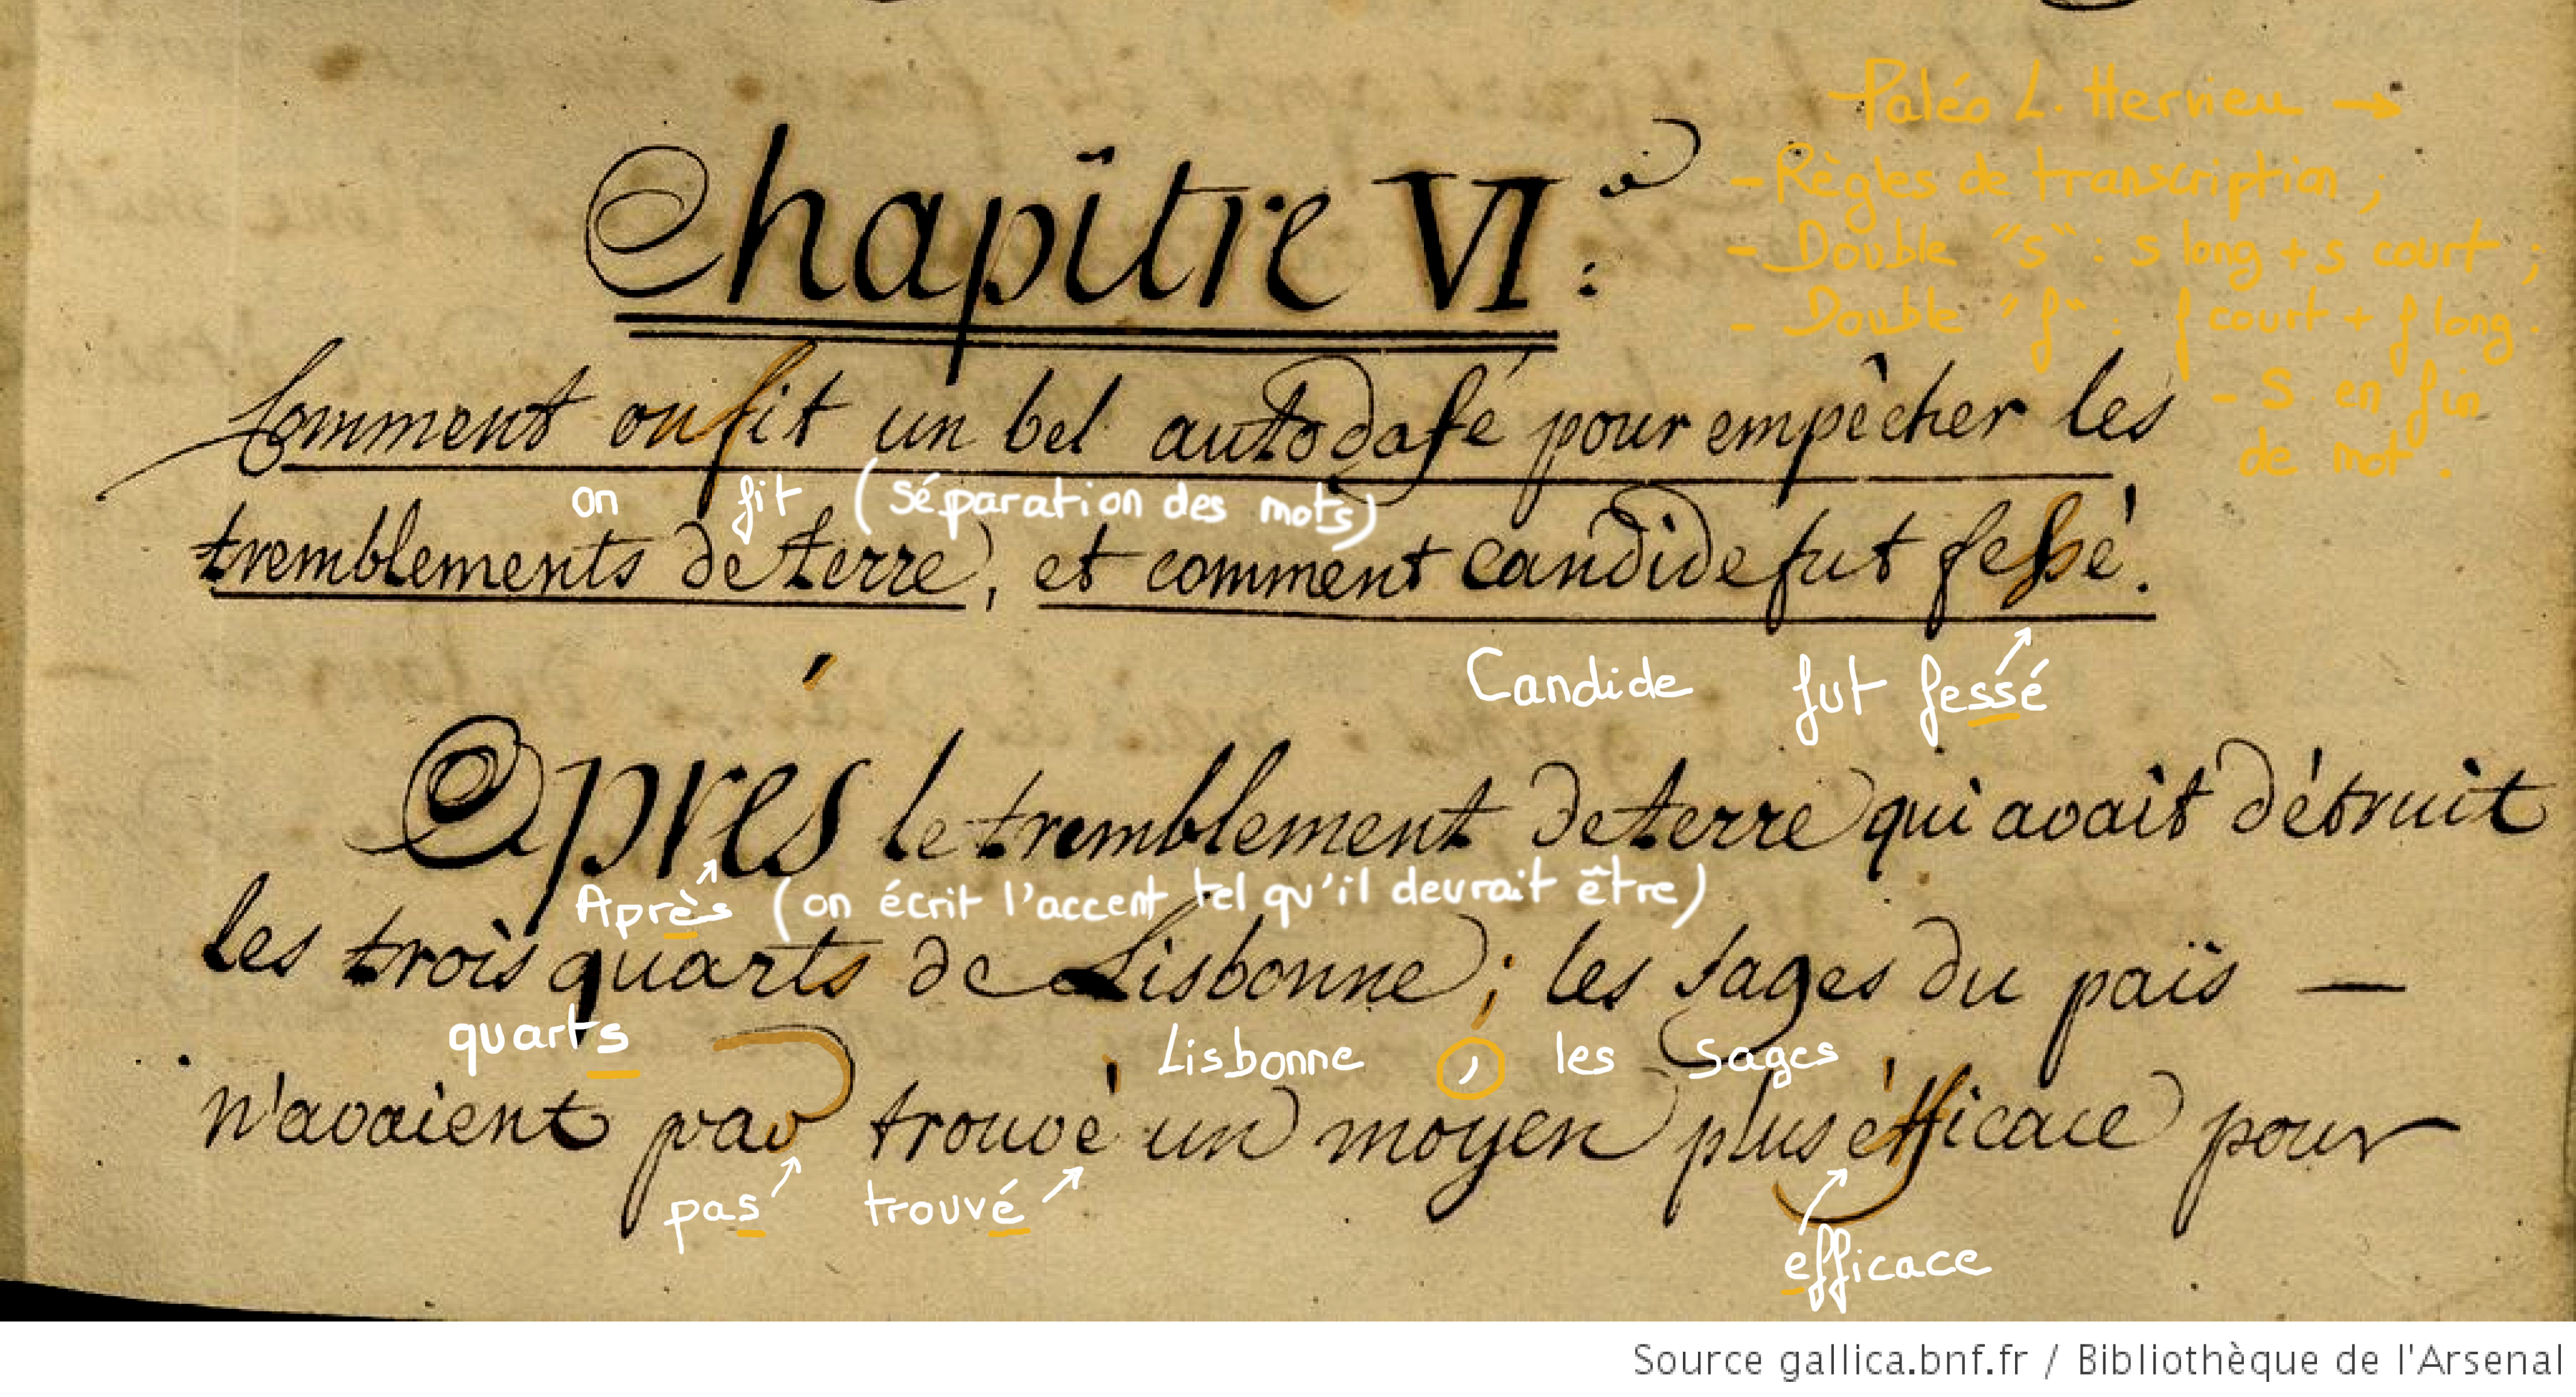 Paléo L. Hervieu →
- Règles de transcription ;
- Double "s" : s long + s court ;
- Double "f" : f court + f long.
- S en fin
de mot.
Chapître VI.e :
Comment on fit un bel autodafé pour empêcher les
on fit (séparation des mots)
tremblements de terre, et comment candide fut fessé.
Candide fut fessé
Aprés le tremblement de terre qui avait détruit
Après (on écrit l'accent tel qu'il devrait être)
les trois quarts de Lisbonne ; les sages du païs —
quarts Lisbonne , les sages
n'avaient pas trouvé un moyen plus éfficace pour
pas trouvé
efficace
Source gallica.bnf.fr / Bibliothèque de l'Arsenal